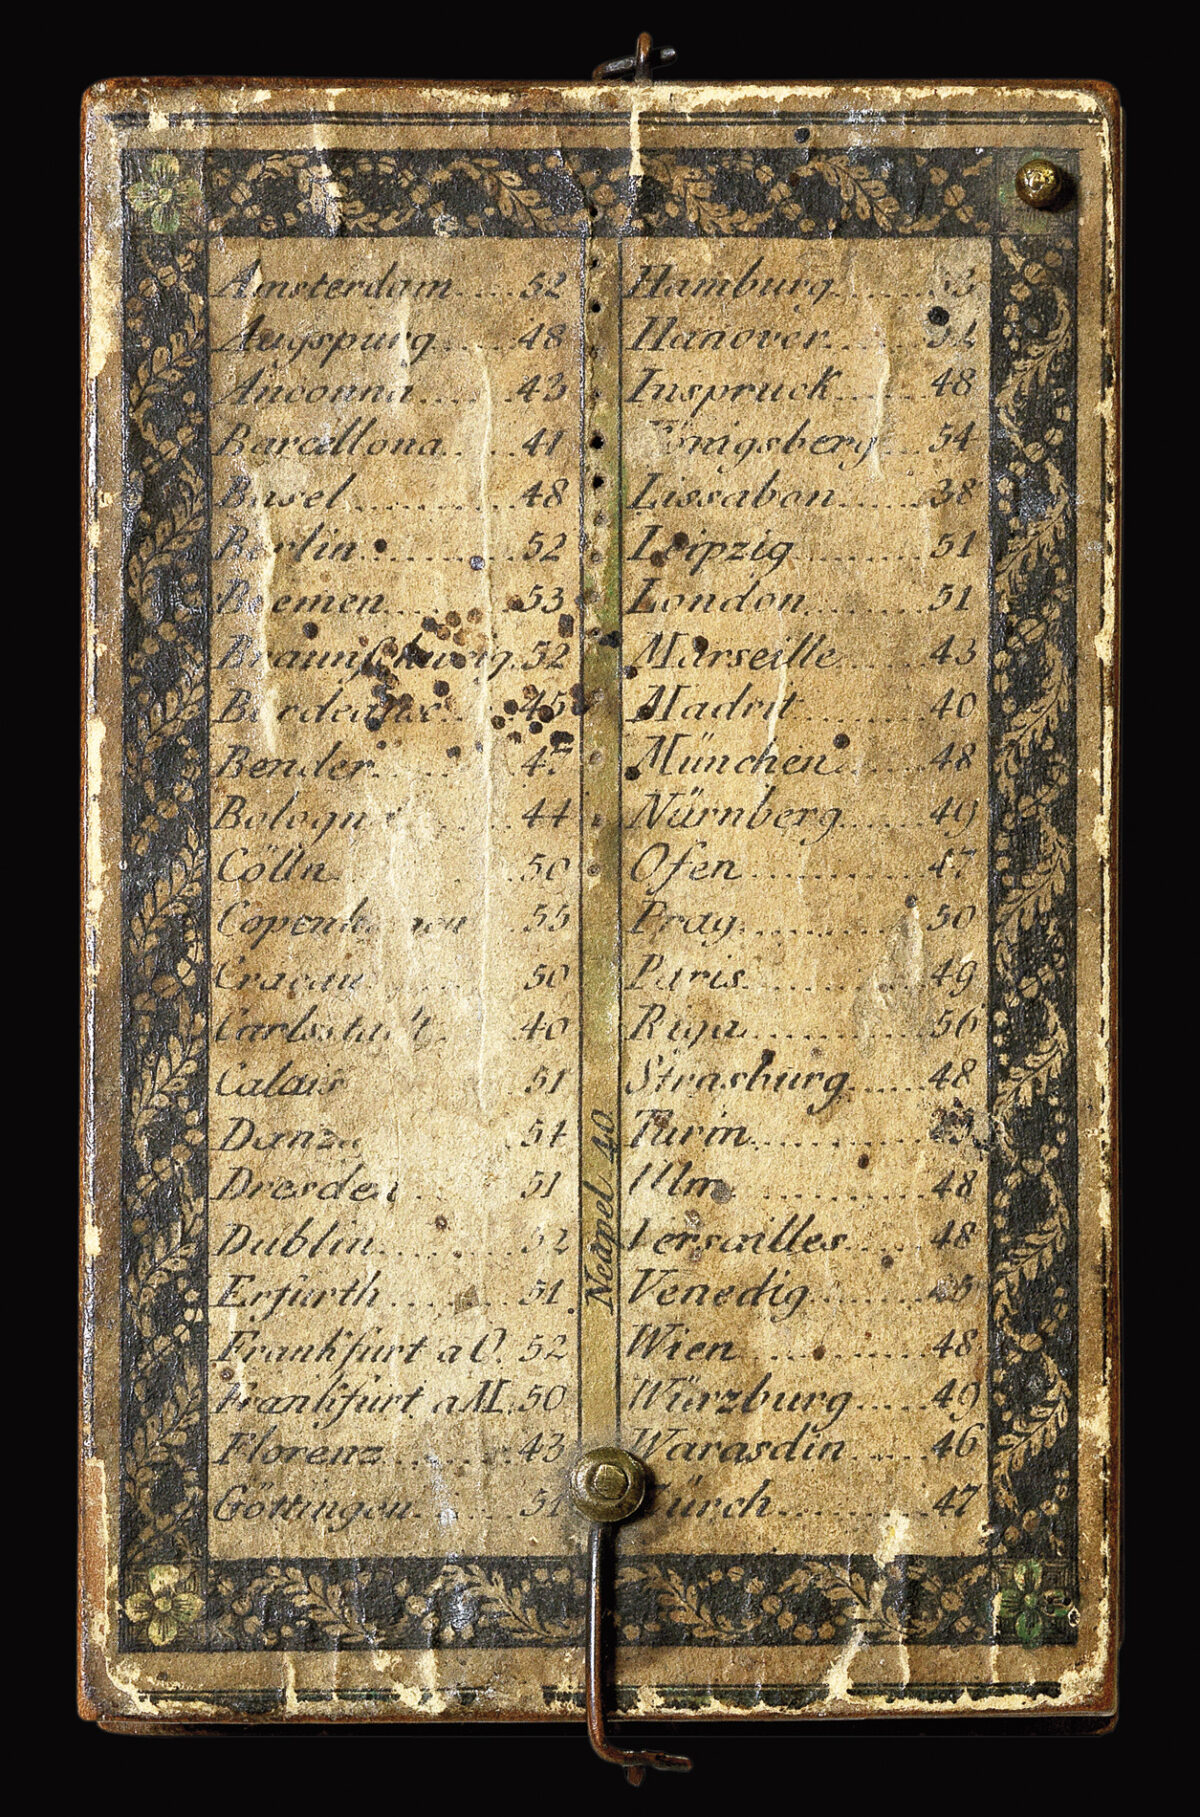 Amsterdam.....52
Augspurg.....48
Anconna.....43
Barcellona.....41
Basel.....48
Berlin.....52
Bremen.....53
Braunſchweig.52
Bordeaux.....45
Bender.....47
Bologna.....44
Cölln.....50
Copenhagen 55
Cracau 50
Carlsstadt 40
Calais 51
Danz 54
Dresden 51
Dublin.....52
Erfurth.....51.
Frankfurt a O. 52
Frankfurt a M. 50
Florenz.....43
Göttingen.....51
Neapel 40
Hamburg.....53
Hanover.....
Inspruck.....48
Königsberg.....54
Lissabon.....38
Leipzig.....51
London.....51
Marseille.....43
Madrit.....40
München.....48
Nürnberg.....49
Ofen.....47
Prag.....50
Paris.....49
Riga.....56
Strasburg.....48
Turin.....
Ulm.....48
Versailles.....48
Venedig.....45
Wien.....48
Würzburg.....49
Warasdin.....46
Zürch.....47